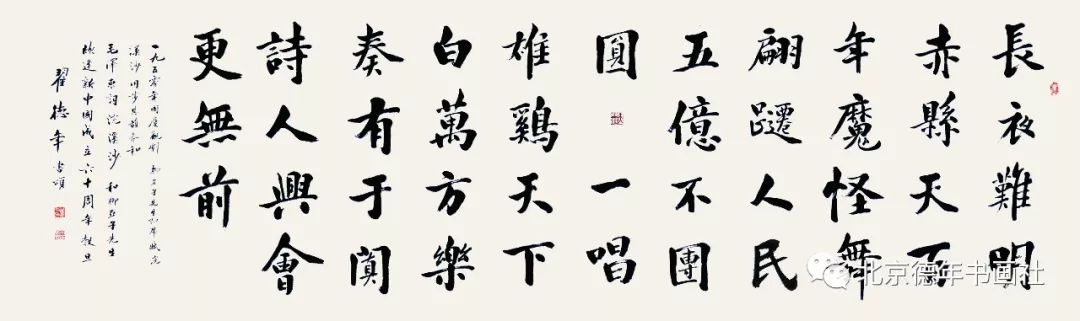 長夜難明
赤縣天百
年魔怪舞
翩躚人民
五億不團
圓一唱
雄鷄天下
白萬方樂
奏有于闐
詩人興會
更無前
一九五零年國慶觀劇 柳亞子先生即席賦浣
溪沙因步其韻奉和
毛澤東詞浣溪沙 和柳亞子先生
欣逢新中國成立六十周年
翟德年書頌
北京德年书画社